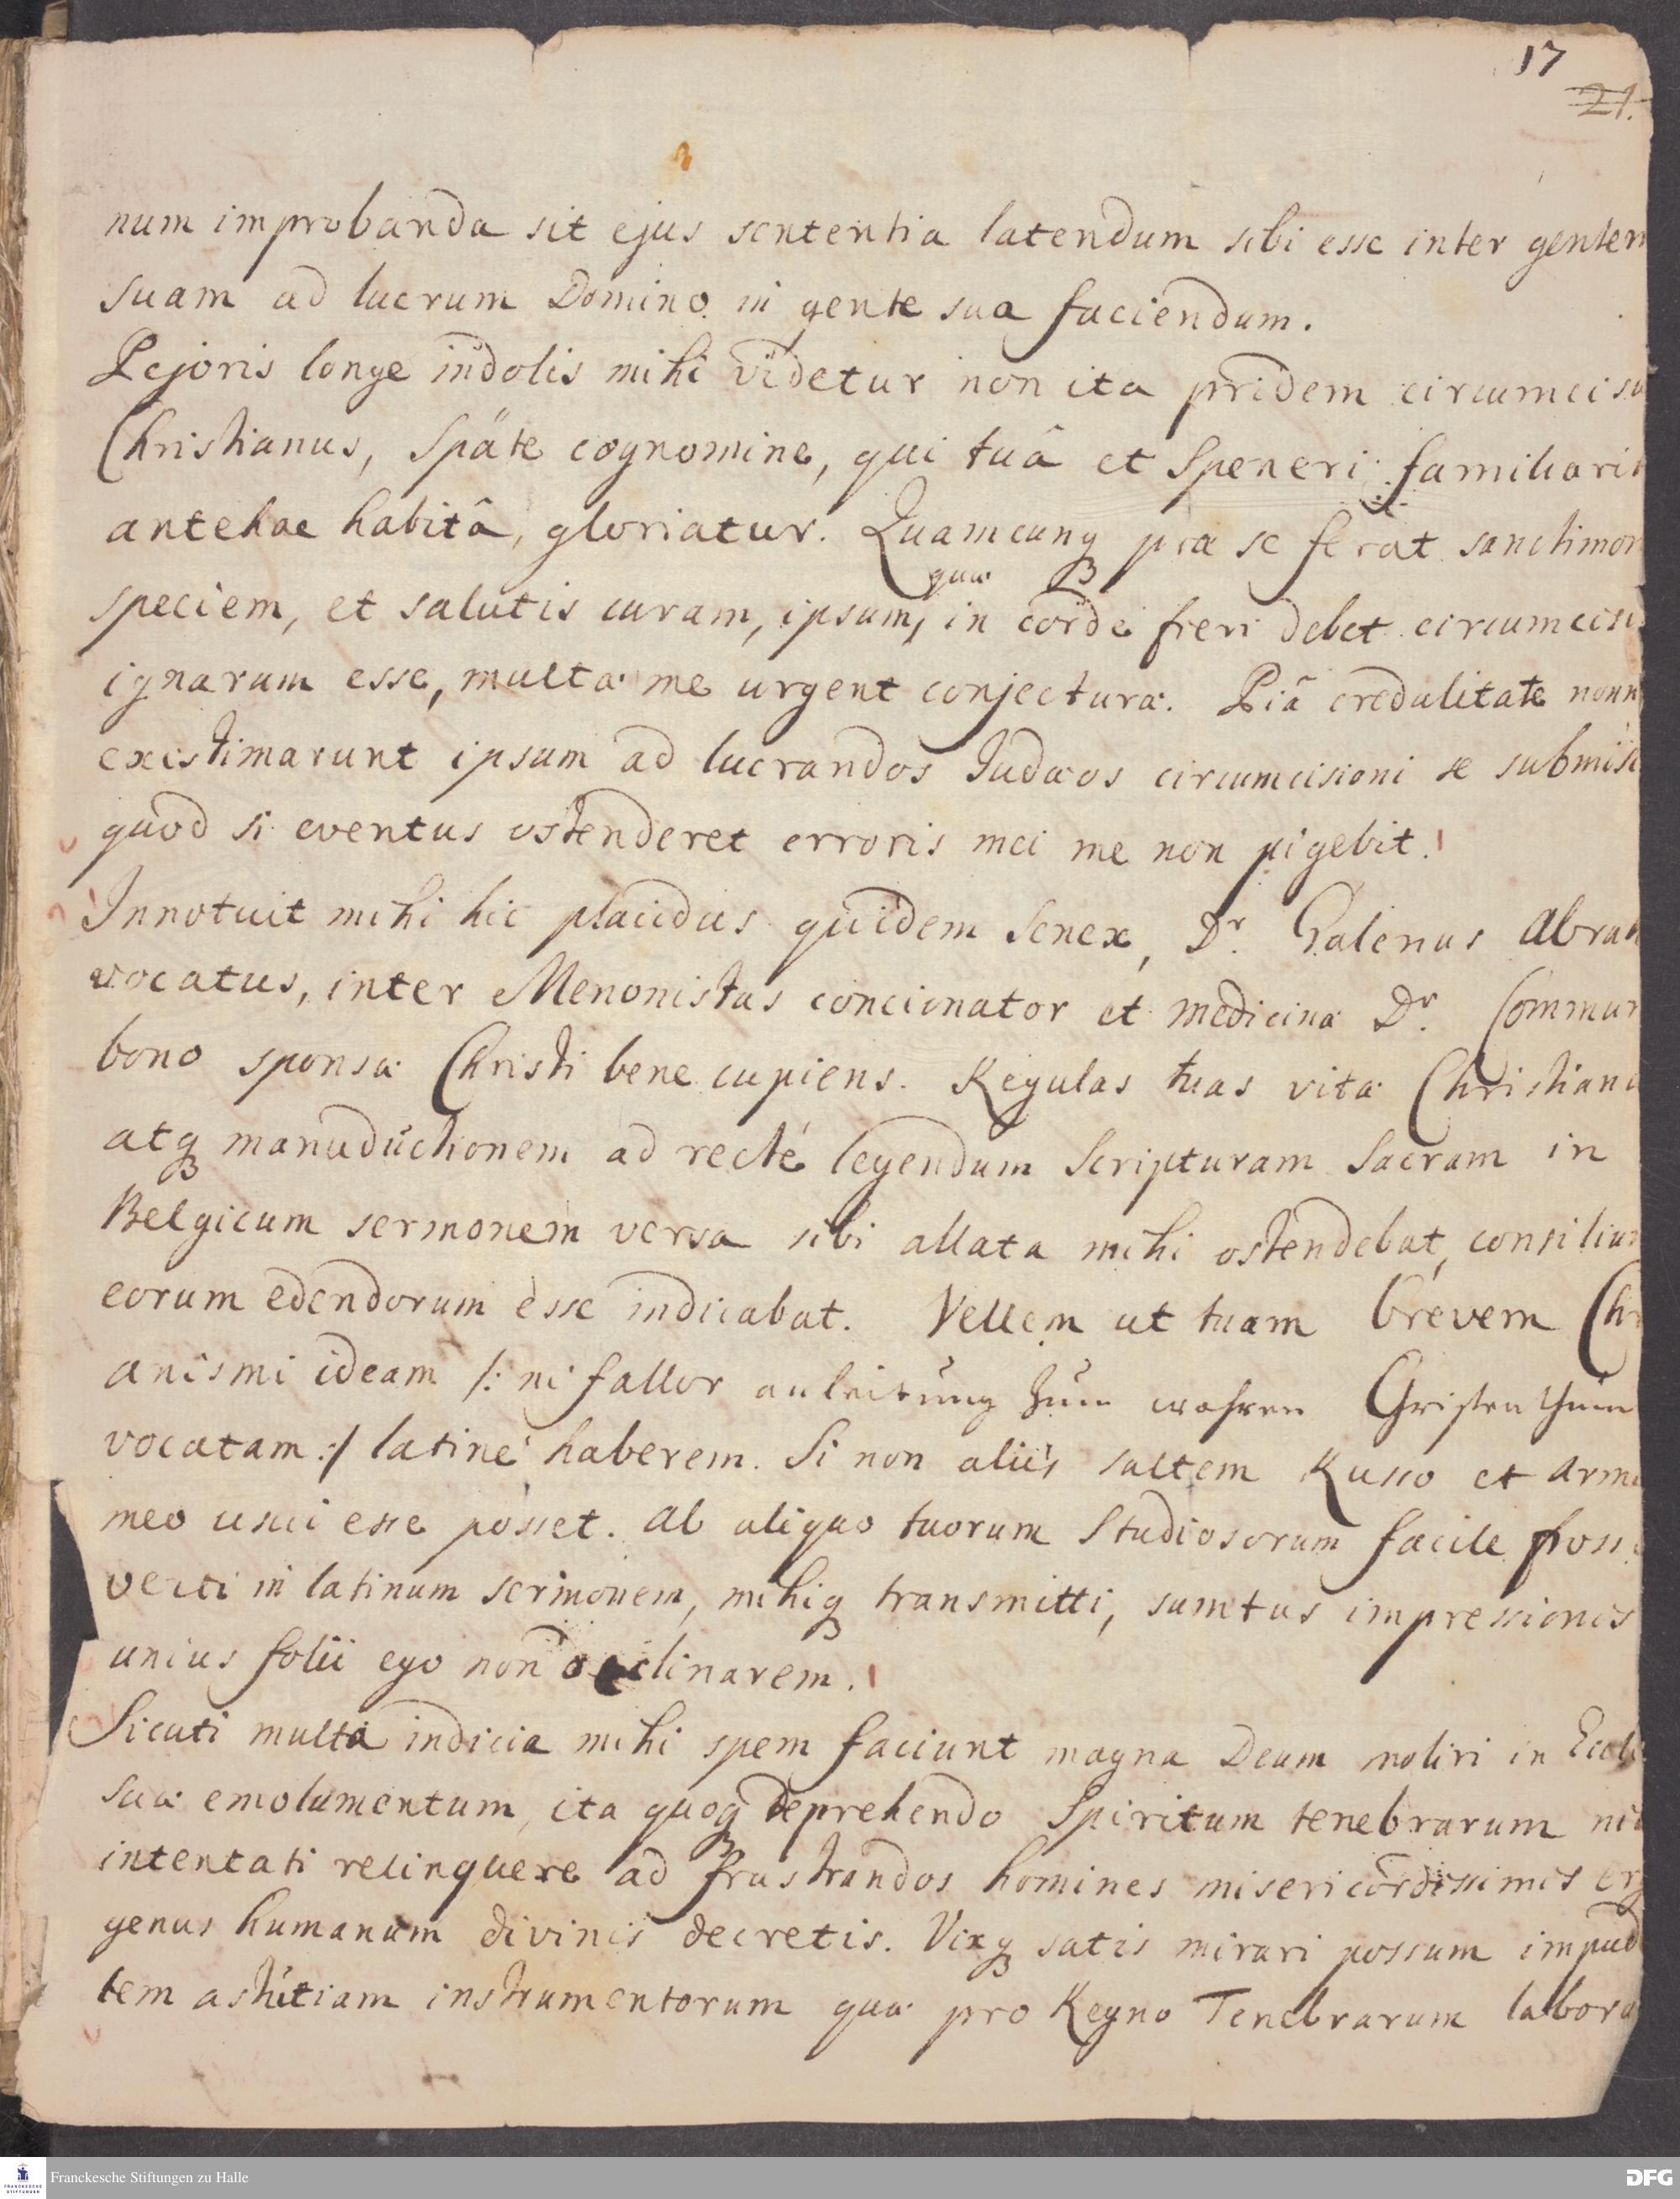 17
21.
num improbanda sit ejus sententia latendum sibi esse inter gentem
suam ad lucrum Domino in gente sua faciendum.
Pejoris longe indolis mihi videtur non ita pridem circumcisu
Christianus, Späte cognomine, qui tuâ et Speneri familiarit
antehac habitâ, gloriatur. Quamcunq præ se ferat sanctimon
quæ
speciem, et salutis curam, ipsum, in corde fieri debet circumcisi
ignarum esse, multæ me urgent conjecturæ. Piâ credulitate nonn
existimarunt ipsum ad lucrandos Judæos circumcisioni se submis
quod si eventus ostenderet erroris mei me non pigebit.
Innotuit mihi hic placidus quidem Senex, Dr. Galenus Abrah
vocatus, inter Menonistas concionator et medicinæ Dr. Commun
bono sponsæ Christi bene cupiens. Regulas tuas vitæ Christianæ
atq manuductionem ad recté legendum Scripturam Sacram in
Belgicum sermonem versa sibi allata mihi ostendebat, consilium
eorum edendorum esse indicabat. Vellem ut tuam brevem Chr
anismi ideam /: ni fallor anleitung zum wahren Christenthum
vocatam :/ latinè haberem. Si non aliis saltem Russo et Arme
meo usui esse posset. Ab aliquo tuorum Studiosorum facile poss
verti in latinum sermonem, mihiq transmitti, sumtus impressionis
unius folii ego non declinarem.
Sicuti multa indicia mihi spem faciunt magna Deum moliri in Eccle
suæ emolumentum, ita quoq deprehendo Spiritum tenebrarum ni
intentati relinquere ad frustrandos homines misericordissimis erg
genus humanum divinis decretis. Vixq satis mirari possum impud
tem astutiam instrumentorum quæ pro Regno Tenebrarum labora
Franckesche Stiftungen zu Halle
DFG